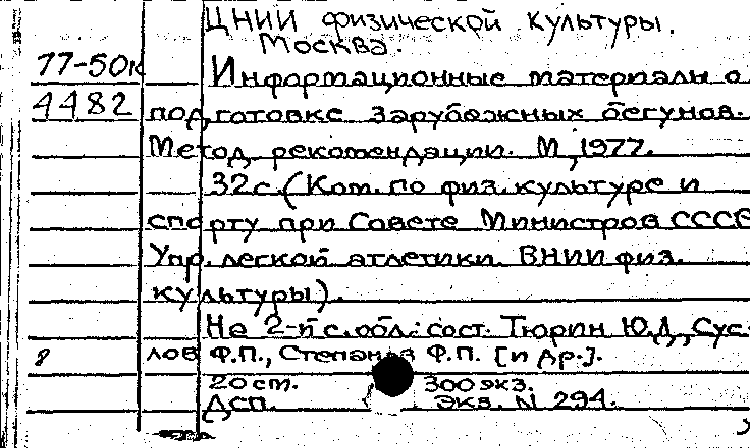 ЦНИИ физической культуры.
Москва.
77-50к
Информационные материалы о
4482 подготовке зарубежных бегунов.
Метод. рекомендации. М., 1977.
32с. (Ком. по физ. культуре и
спорту при Совете Министров СССР
Упр. легкой атлетики. ВНИИ физ.
культуры).
На 2-й с. обл.: сост. Тюрин Ю.Д., Сус-
лов Ф.П., Степанов Ф.П. [и др.].
20 cm. 300 экз.
ДСП. Экз. N 294.